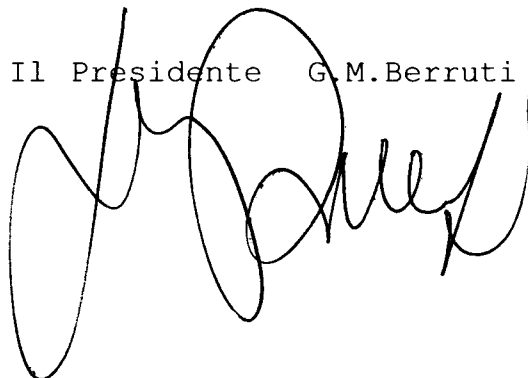 Il Presidente G.M.Berruti